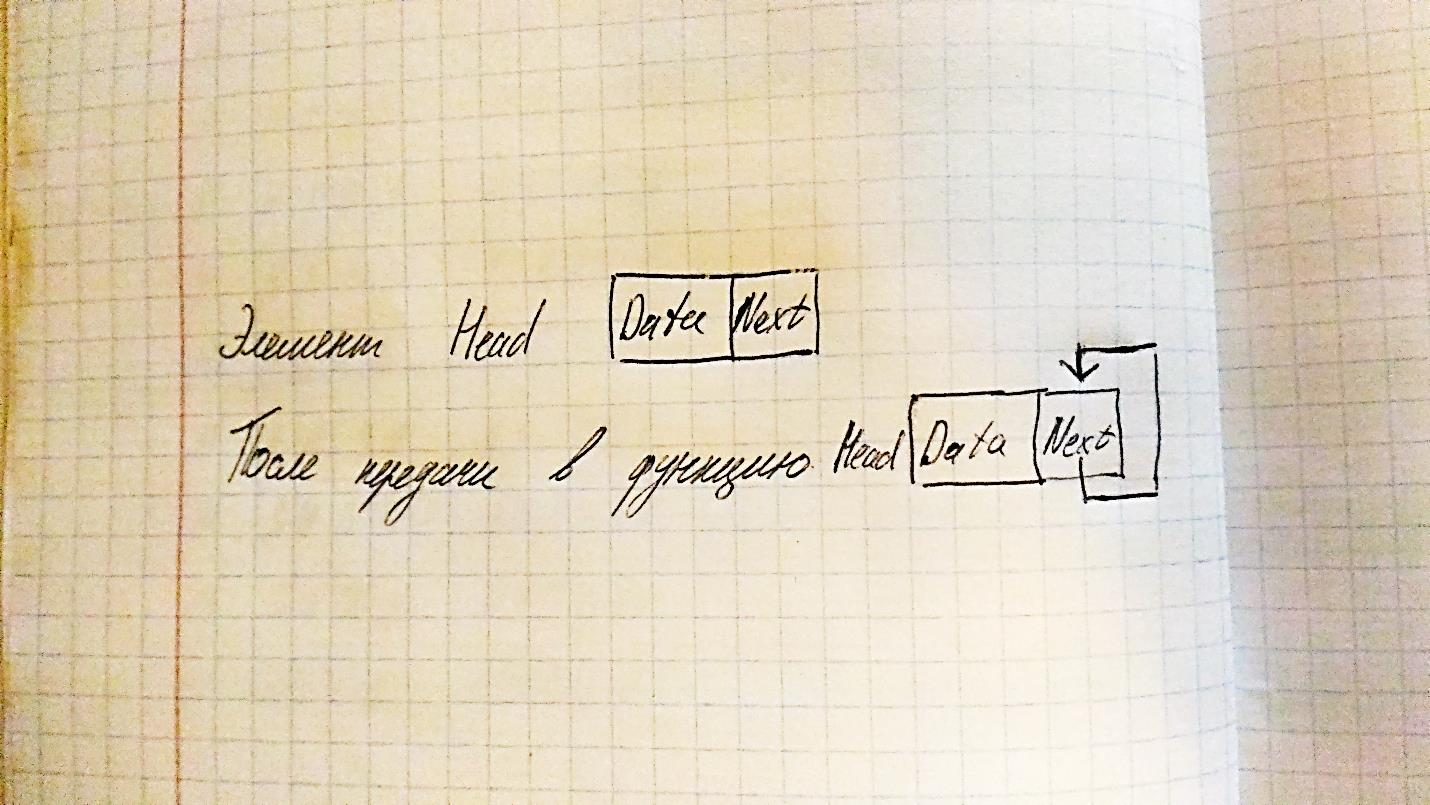 Элемент Head Data Next
После передачи в функцию Head Data Next